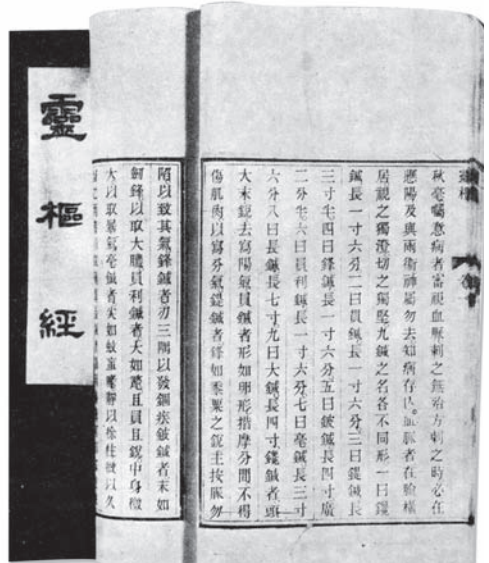 秋毫囑意病者審視血脈刺之無殆方刺之時必在
懸陽及與兩衛神屬勿去知病存亡血脈者在腧橫
居視之獨澄切之獨堅九鍼之名各不同形一曰鑱
鍼長一寸六分二曰員鍼長一寸六分三曰鍉鍼長
三寸半四曰鋒鍼長一寸六分五曰鈹鍼長四寸廣
二分半六曰員利鍼長一寸六分七曰毫鍼長三寸
六分八曰長鍼長七寸九曰大鍼長四寸鑱鍼者頭
大末銳去寫陽氣員鍼者形如卵形揩摩分間不得
傷肌肉以寫分氣鍉鍼者鋒如黍粟之銳主按脈勿
陷以致其氣鋒鍼者刃三隅以發錮疾鈹鍼者末如
劍鋒以取大膿員利鍼者大如氂且員且銳中身微
大以取暴氣毫鍼者尖如蚊虻喙靜以徐往微以久
靈樞經